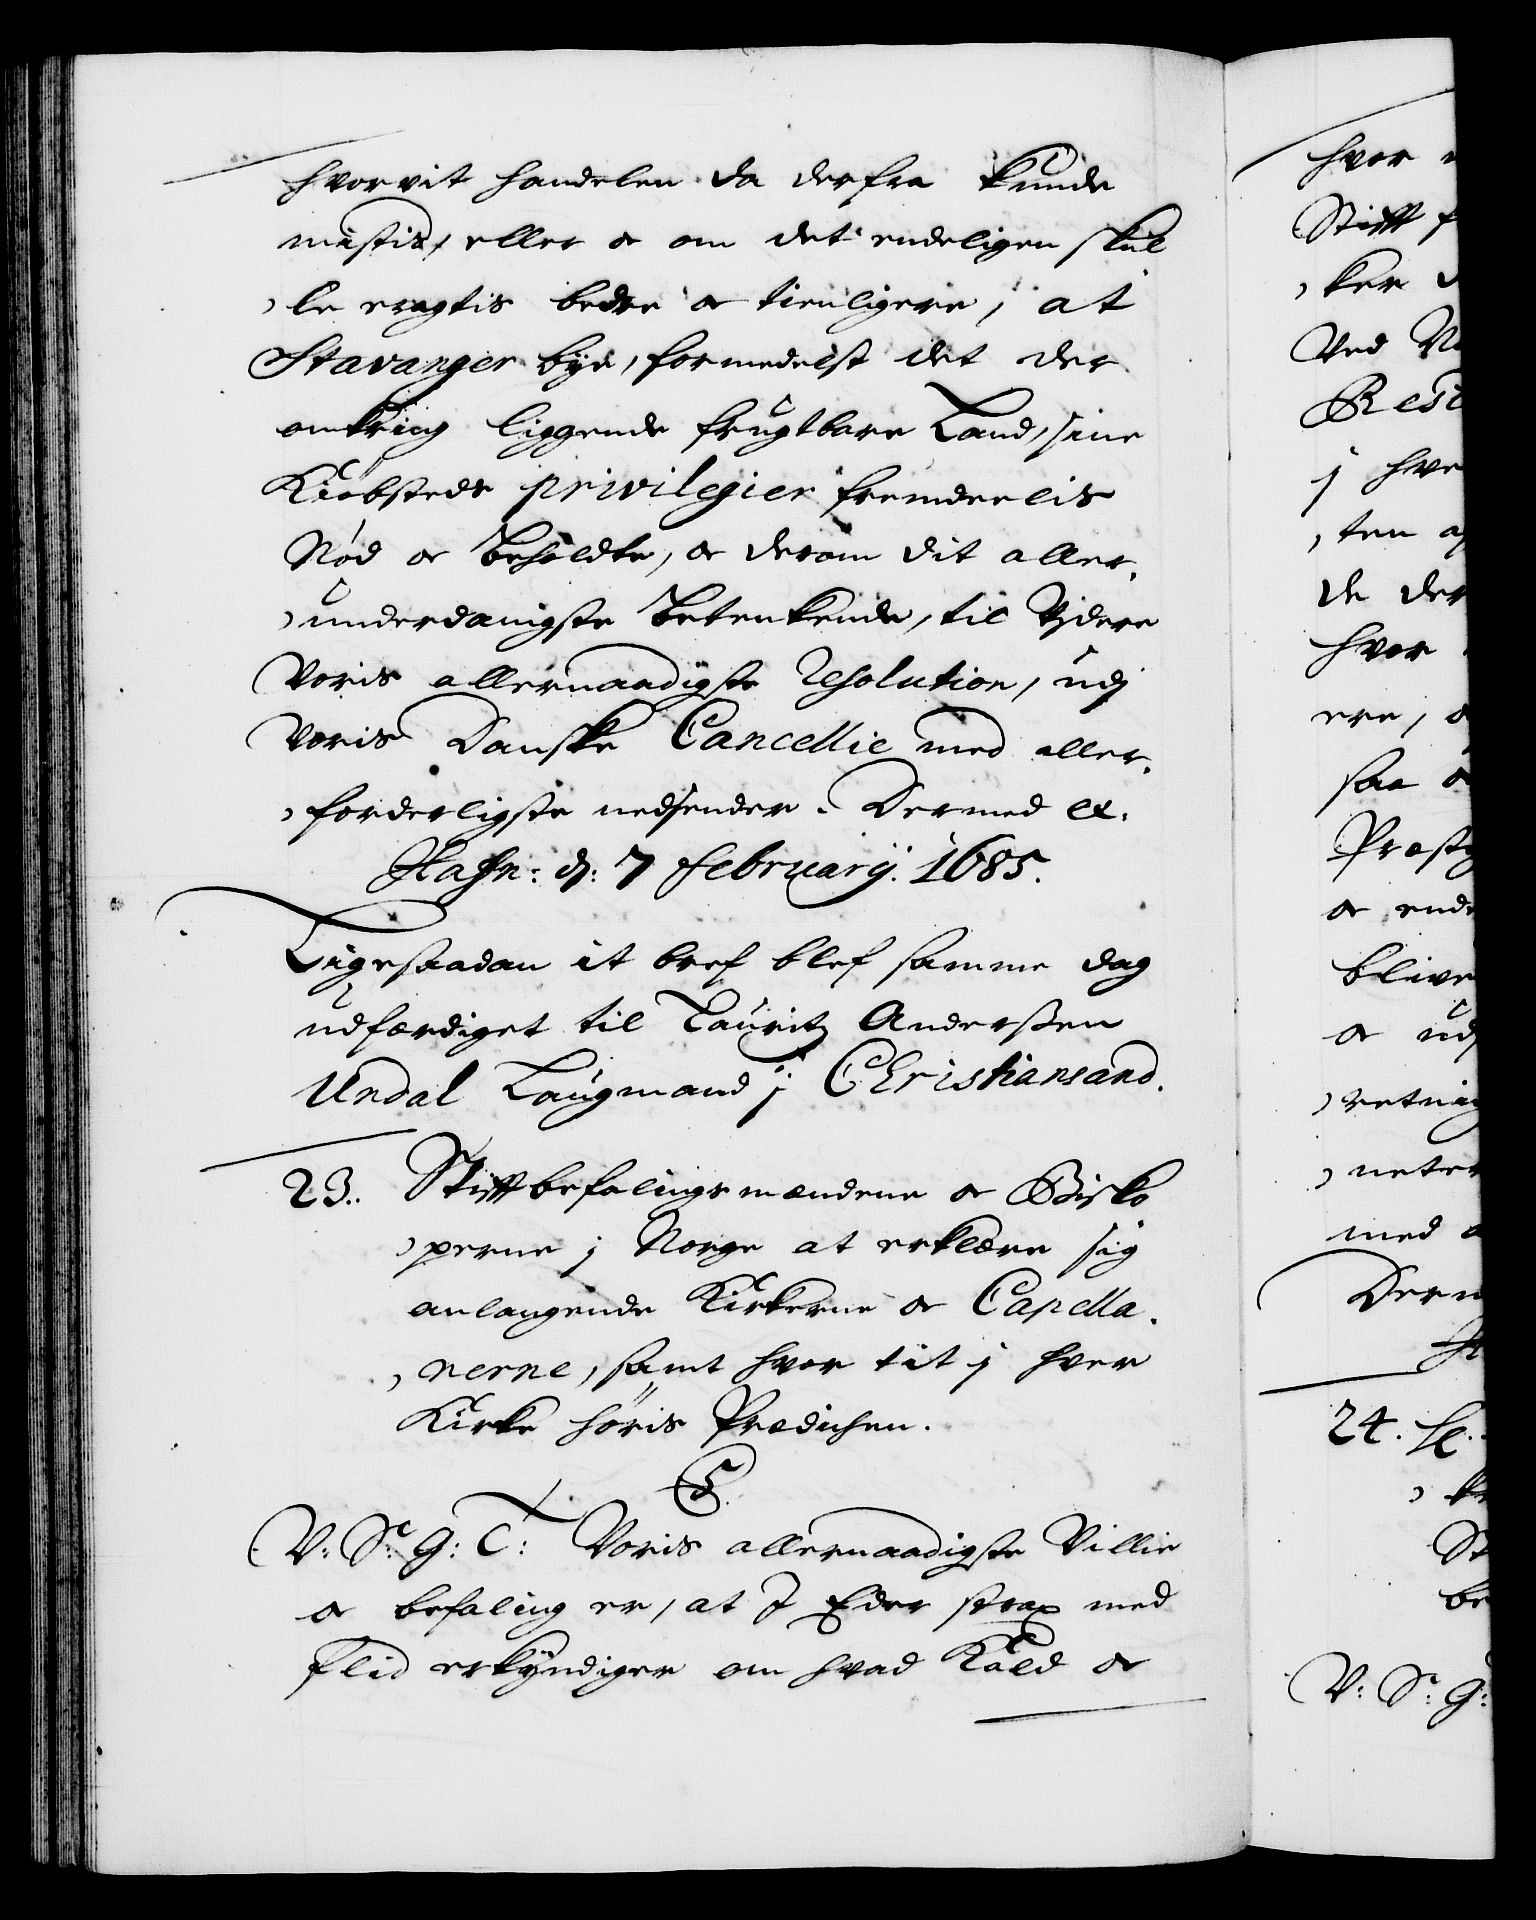 hvorvit handelen da derfra kunde
mistis, eller oc om det endeligen skul
le eragtis bedre oc tienligere, at
Stavanger bye, formedelst det der
omkring liggende frugtbare Land, sine
Kiøbsteds privilegier fremdeelis
Nød oc beholdte, oc derom dit aller,
underdanigste Betenkende, til Videre
Voris allernaadigste Resolution, udj
Voris Danske Cancellie med aller,
forderligste nedsender. Dermed &.
Hafn: d: 7 February. 1685.
Ligesaadan it bref blef samme dag
udfærdiget til Lauritz Anderßen
Undal Laugmand j Christiansand.
23. Stiftbefalingsmændene oc Bisko
perne j Norge at erklære sig
anlangende Kirkerne oc Capella,
nerne, samt hvor tit j hver
Kirke høris Prædichen.
C5.
V: S: G: T: Voris allernaadigste Villie
oc befaling er, at I Eder strax med
flid erkyndiger om hvad Kald oc
hvor
Stift
ker
Ved
j hve
ten
de der
hvor
ere,
saa
oc ende
blive
oc
med
24.
V: S: G: